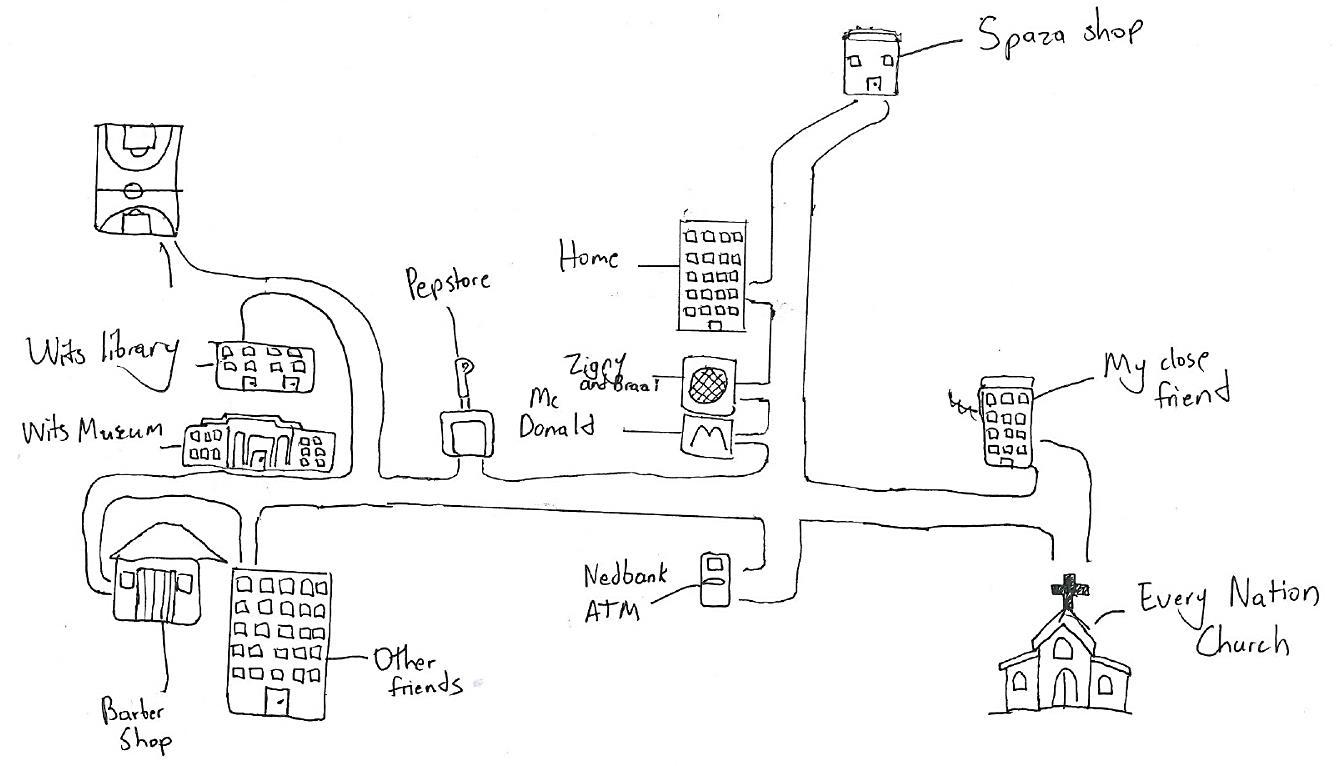 Spaza shop
Home
Pepstore
Wits library
Zigny
and Braai
Mc
Donald
My close
friend
Wits Museum
Nedbank
ATM
Every Nation
Church
Other
friends
Barber
Shop